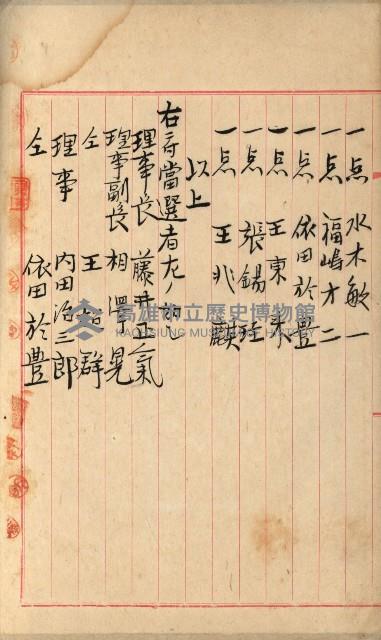 一点 水木敏一
一点 福嶋才二
一点 依田於豊
一点 王東来
一点 張錫
一点 王兆麒
以上
右 當選者左ノ如
理事長 藤井 氣
理事副長 相澤 晃
仝 王 群
理事 内田 三郎
仝 依田於豊
高雄市立歷史博物館
KAOHSIUNG MUSEUM OF HISTORY